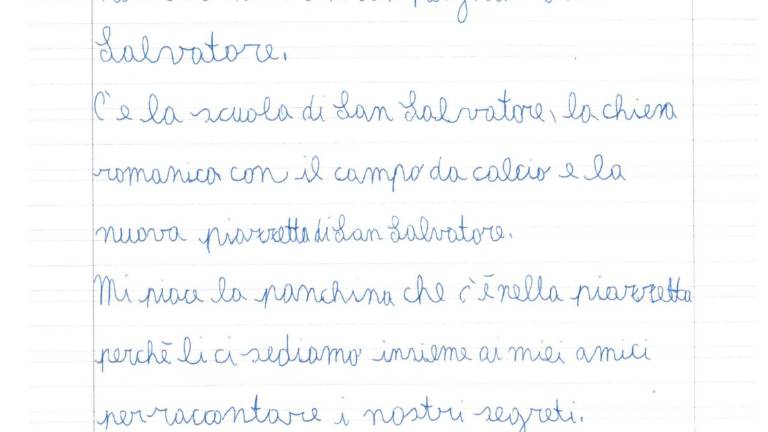 Salvatore.
C'e la scuola di San Salvatore, la chiesa
romanica con il campo da calcio e la
nuova piazzetta di San Salvatore.
Mi piace la panchina che c'è nella piazzetta
perchè li ci sediamo insieme ai miei amici
per raccontare i nostri segreti.